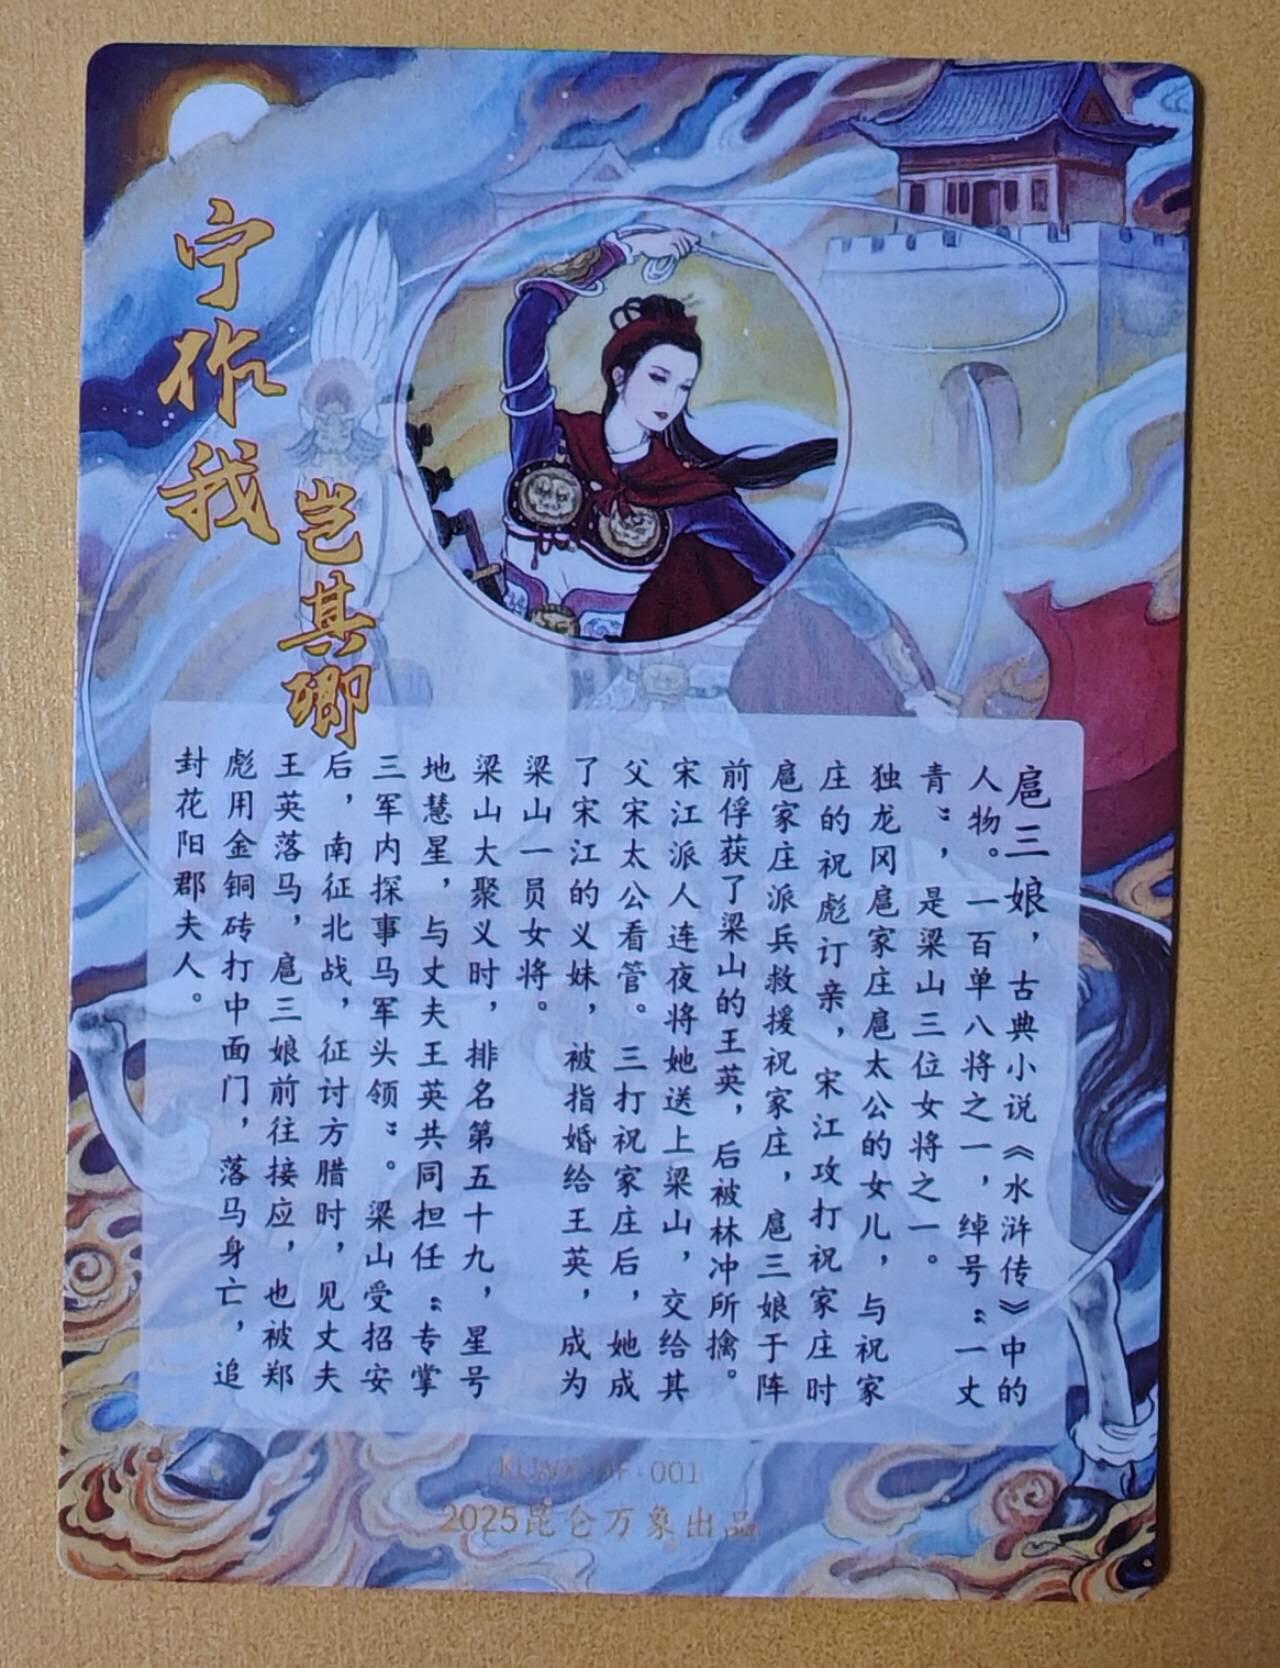 宁作我
岂其卿
扈三娘，古典小说《水浒传》中的
人物。一百单八将之一，绰号“一丈
青”，是梁山三位女将之一。
独龙冈扈家庄扈太公的女儿，与祝家
庄的祝彪订亲，宋江攻打祝家庄时
扈家庄派兵救援祝家庄，扈三娘于阵
前俘获了梁山的王英，后被林冲所擒。
宋江派人连夜将她送上梁山，交给其
父宋太公看管。三打祝家庄后，她成
了宋江的义妹，被指婚给王英，成为
梁山一员女将。
梁山大聚义时，排名第五十九，星号
地慧星，与丈夫王英共同担任“专掌
三军内探事马军头领”。梁山受招安
后，南征北战，征讨方腊时，见丈夫
王英落马，扈三娘前往接应，也被郑
彪用金铜砖打中面门，落马身亡，追
封花阳郡夫人。
001
2025昆仑万象出品